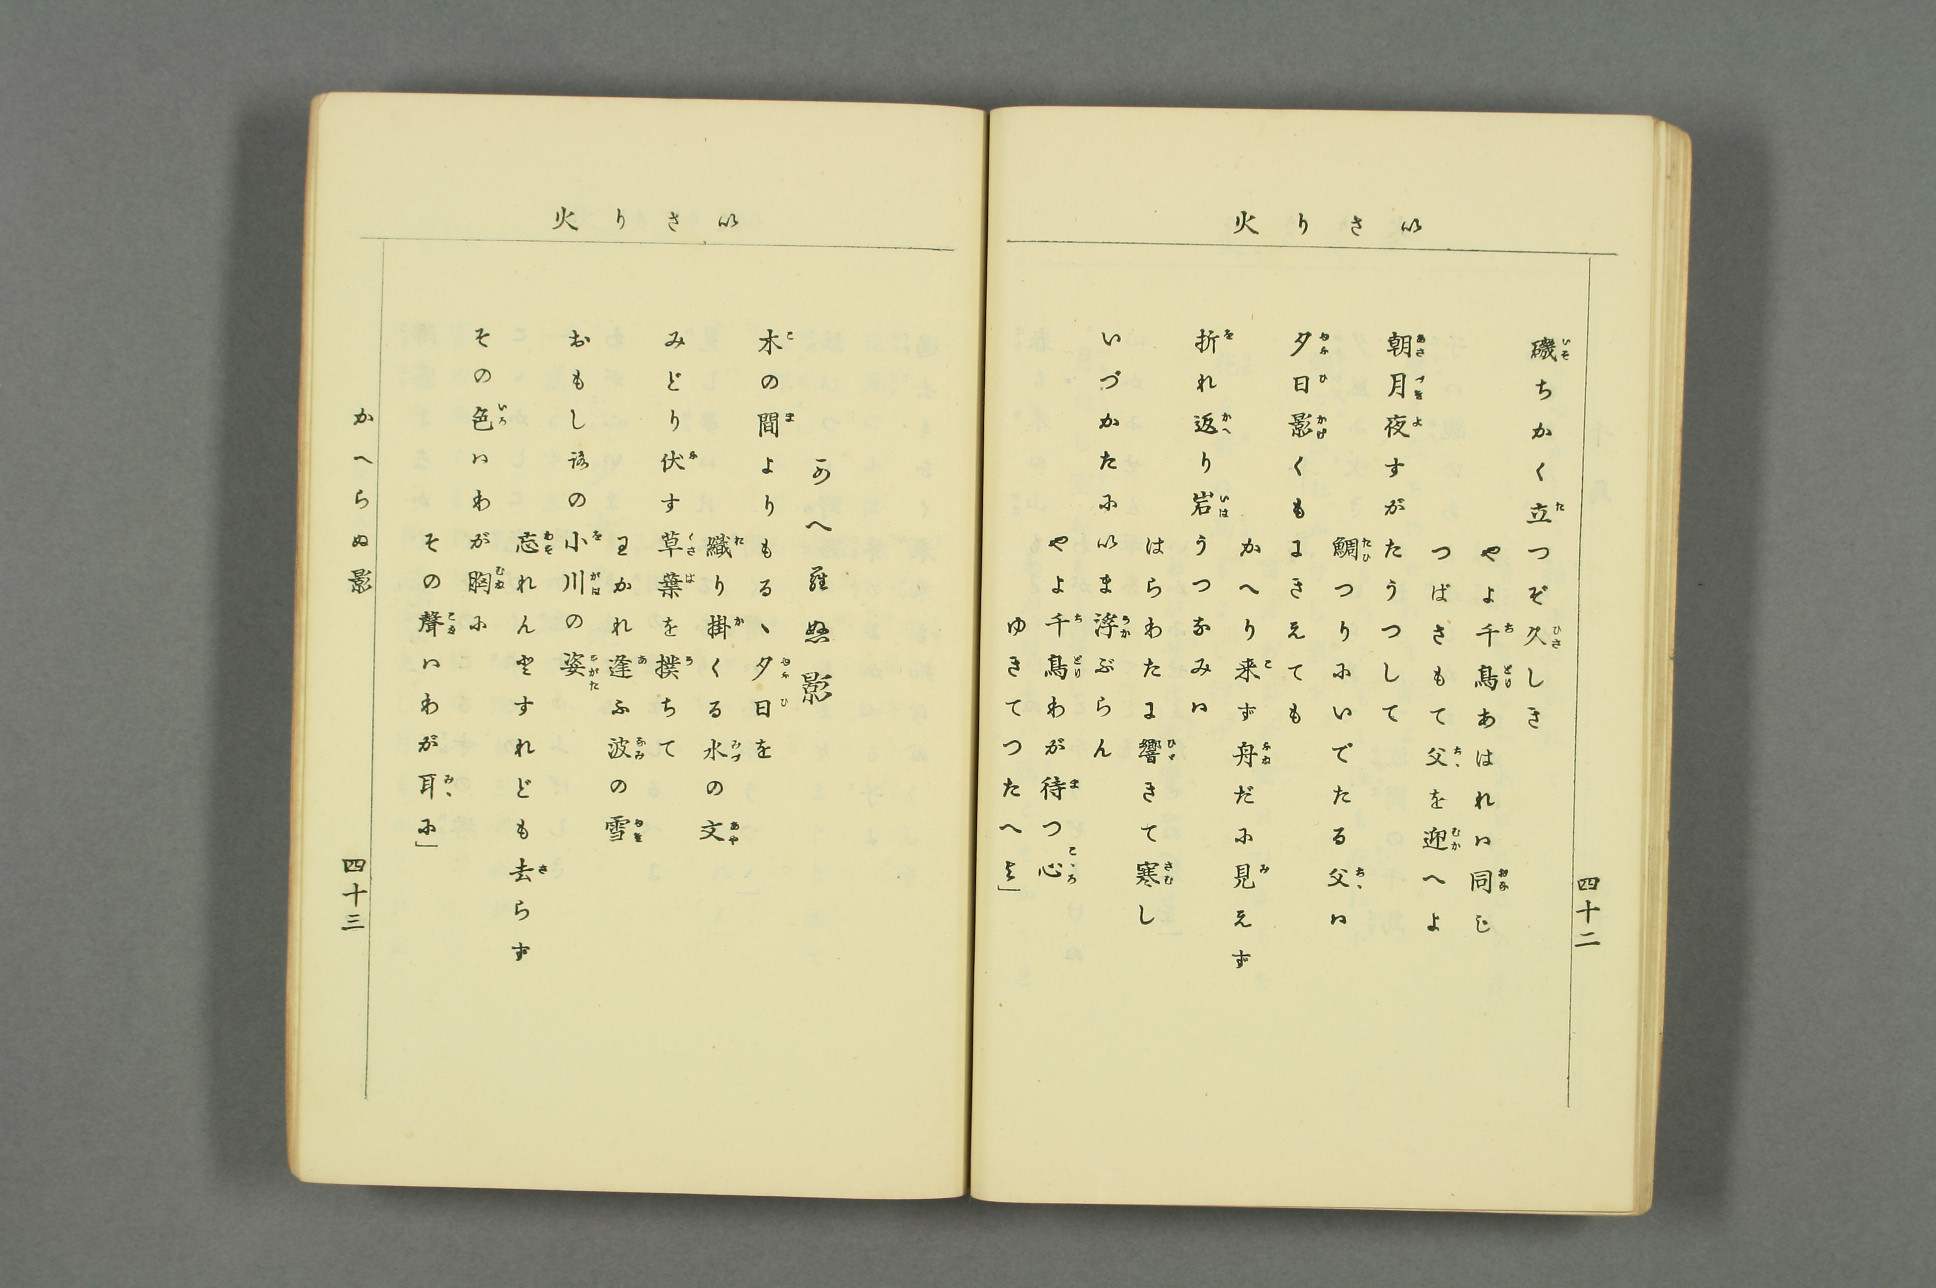 いさり火
四十二
磯ちかく立つぞ久しき
やよ千鳥あはれは同じ
つばさもて父を迎へよ
朝月夜すがたうつして
鯛つりにいでたる父は
夕日影くもにきえても
かへり来ず舟だに見えず
折れ返り岩うつなみは
はらわたに響きて寒し
いづかたにいま浮ぶらん
やよ千鳥わが待つ心
ゆきてつたへよ」
いさり火
かへらぬ影
木の間よりもるゝ夕日を
織り掛くる水の文
みどり伏す草葉を撲ちて
わかれ逢ふ波の雪
おもしろの小川の姿
忘れんとすれども去らず
その色はわが胸に
その聲はわが耳に」
かへらぬ影
四十三